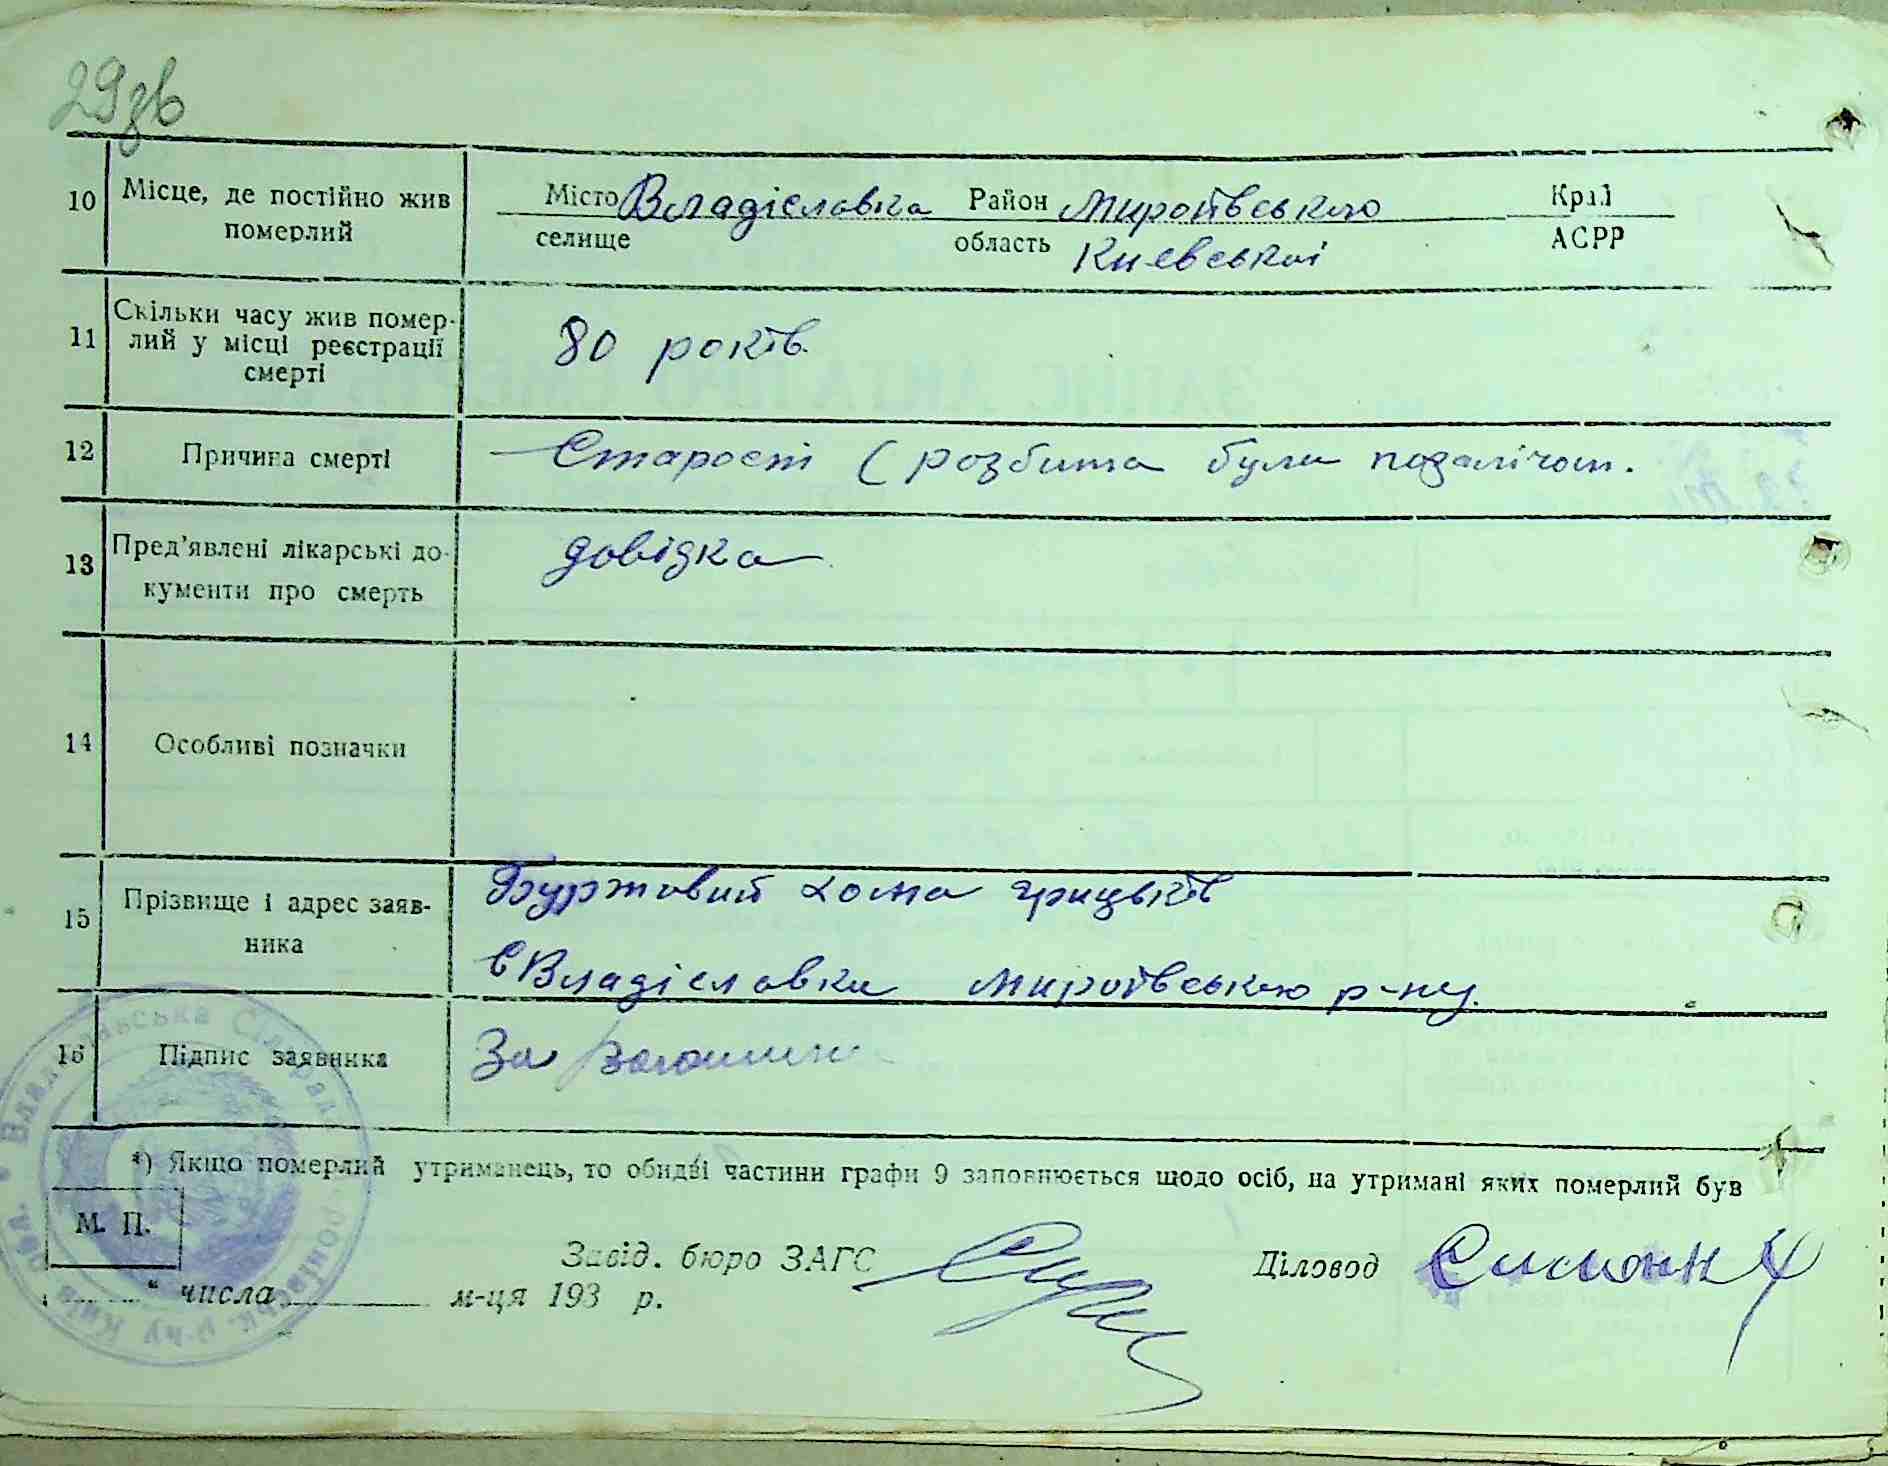 29зв
10 Місце, де постійно жив померлий
Місто Владіславка Район Миронівського Край
селище область Киевської АСРР
11 Скільки часу жив помер-
лий у місці реєстрації
смерті
80 років.
12 Причина смерті
Старості (розбита була паралічом.
13 Пред'явлені лікарські до-
кументи про смерть
довідка
14 Особливі позначки
15 Прізвище і адрес заяв-
ника
Буртовий Хома Грицьків
с Владіславки Миронівського р-ну.
16 Підпис заявника
За
*) Якщо померлий утриманець, то обидві частини графи 9 заповнюється щодо осіб, на утримані яких померлий був
М. П.
Завід. бюро ЗАГС
Діловод
" числа м-ця 193 р.